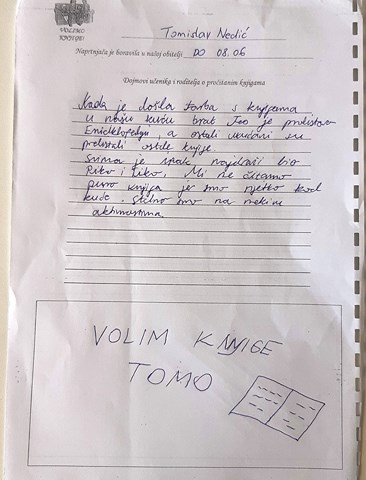 VOLIMO
KNJIGE!
Tomislav Nedić
Naprtnjača je boravila u našoj obitelji DO 08.06
Dojmovi učenika i roditelja o pročitanim knjigama
Kada je došla torba s knjigama
u našu kuću brat Ivo je prolistao
Enciklopediju, a ostali ukućani su
prolistali ostale knjige.
svima je ipak najdraži bio
Riko i Niko, Mi ne čitamo
puno knjiga jer smo rijetko kod
kuće. Stalno smo na nekim
aktivnostima
VOLIM KNJIGE
TOMO